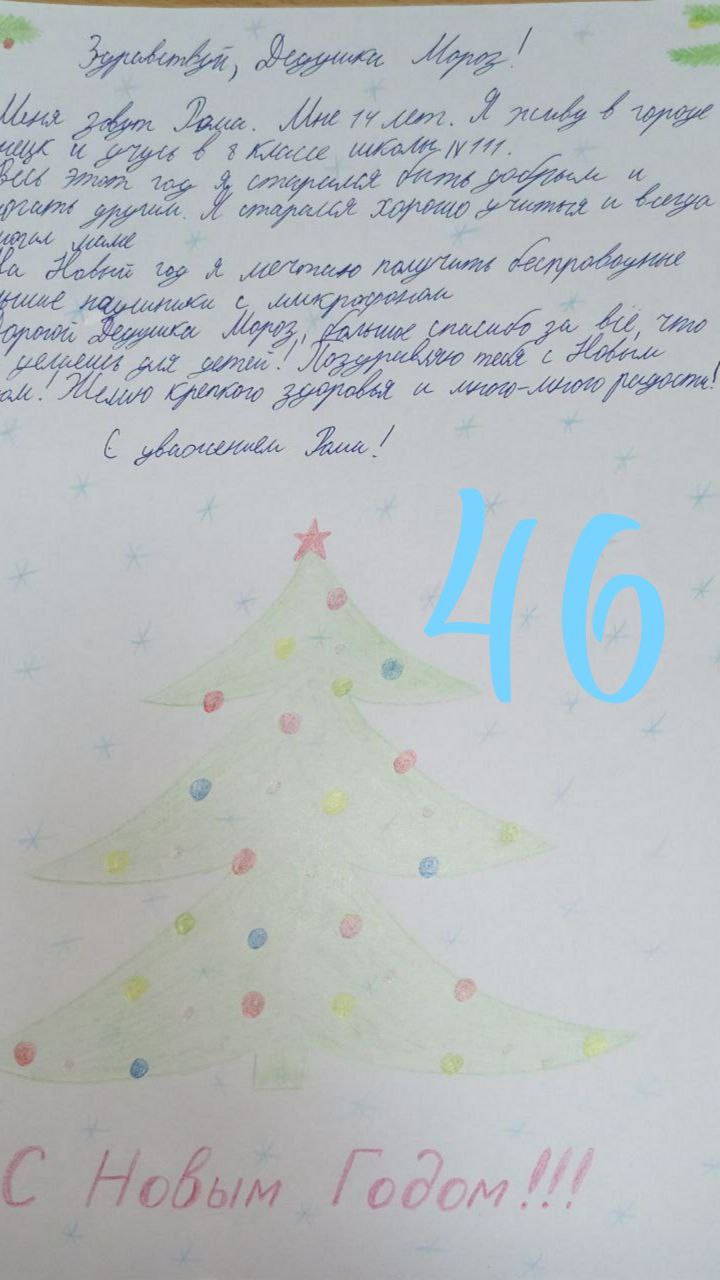 Здравствуй, Дедушка Мороз!
Меня зовут Рома. Мне 14 лет. Я живу в городе
нецк и учусь в 8 классе школы №111.
Весь этот год я старался быть добрым и
огать другим. Я старался хорошо учиться и всегда
могал маме
На Новый год я мечтаю получить беспроводные
ьшие наушники с микрофоном
Дорогой Дедушка Мороз, большое спасибо за всё, что
делаешь для детей! Поздравляю тебя с Новым
ом! Желаю крепкого здоровья и много-много радости!
С уважением Рома!
46
С Новым Годом!!!